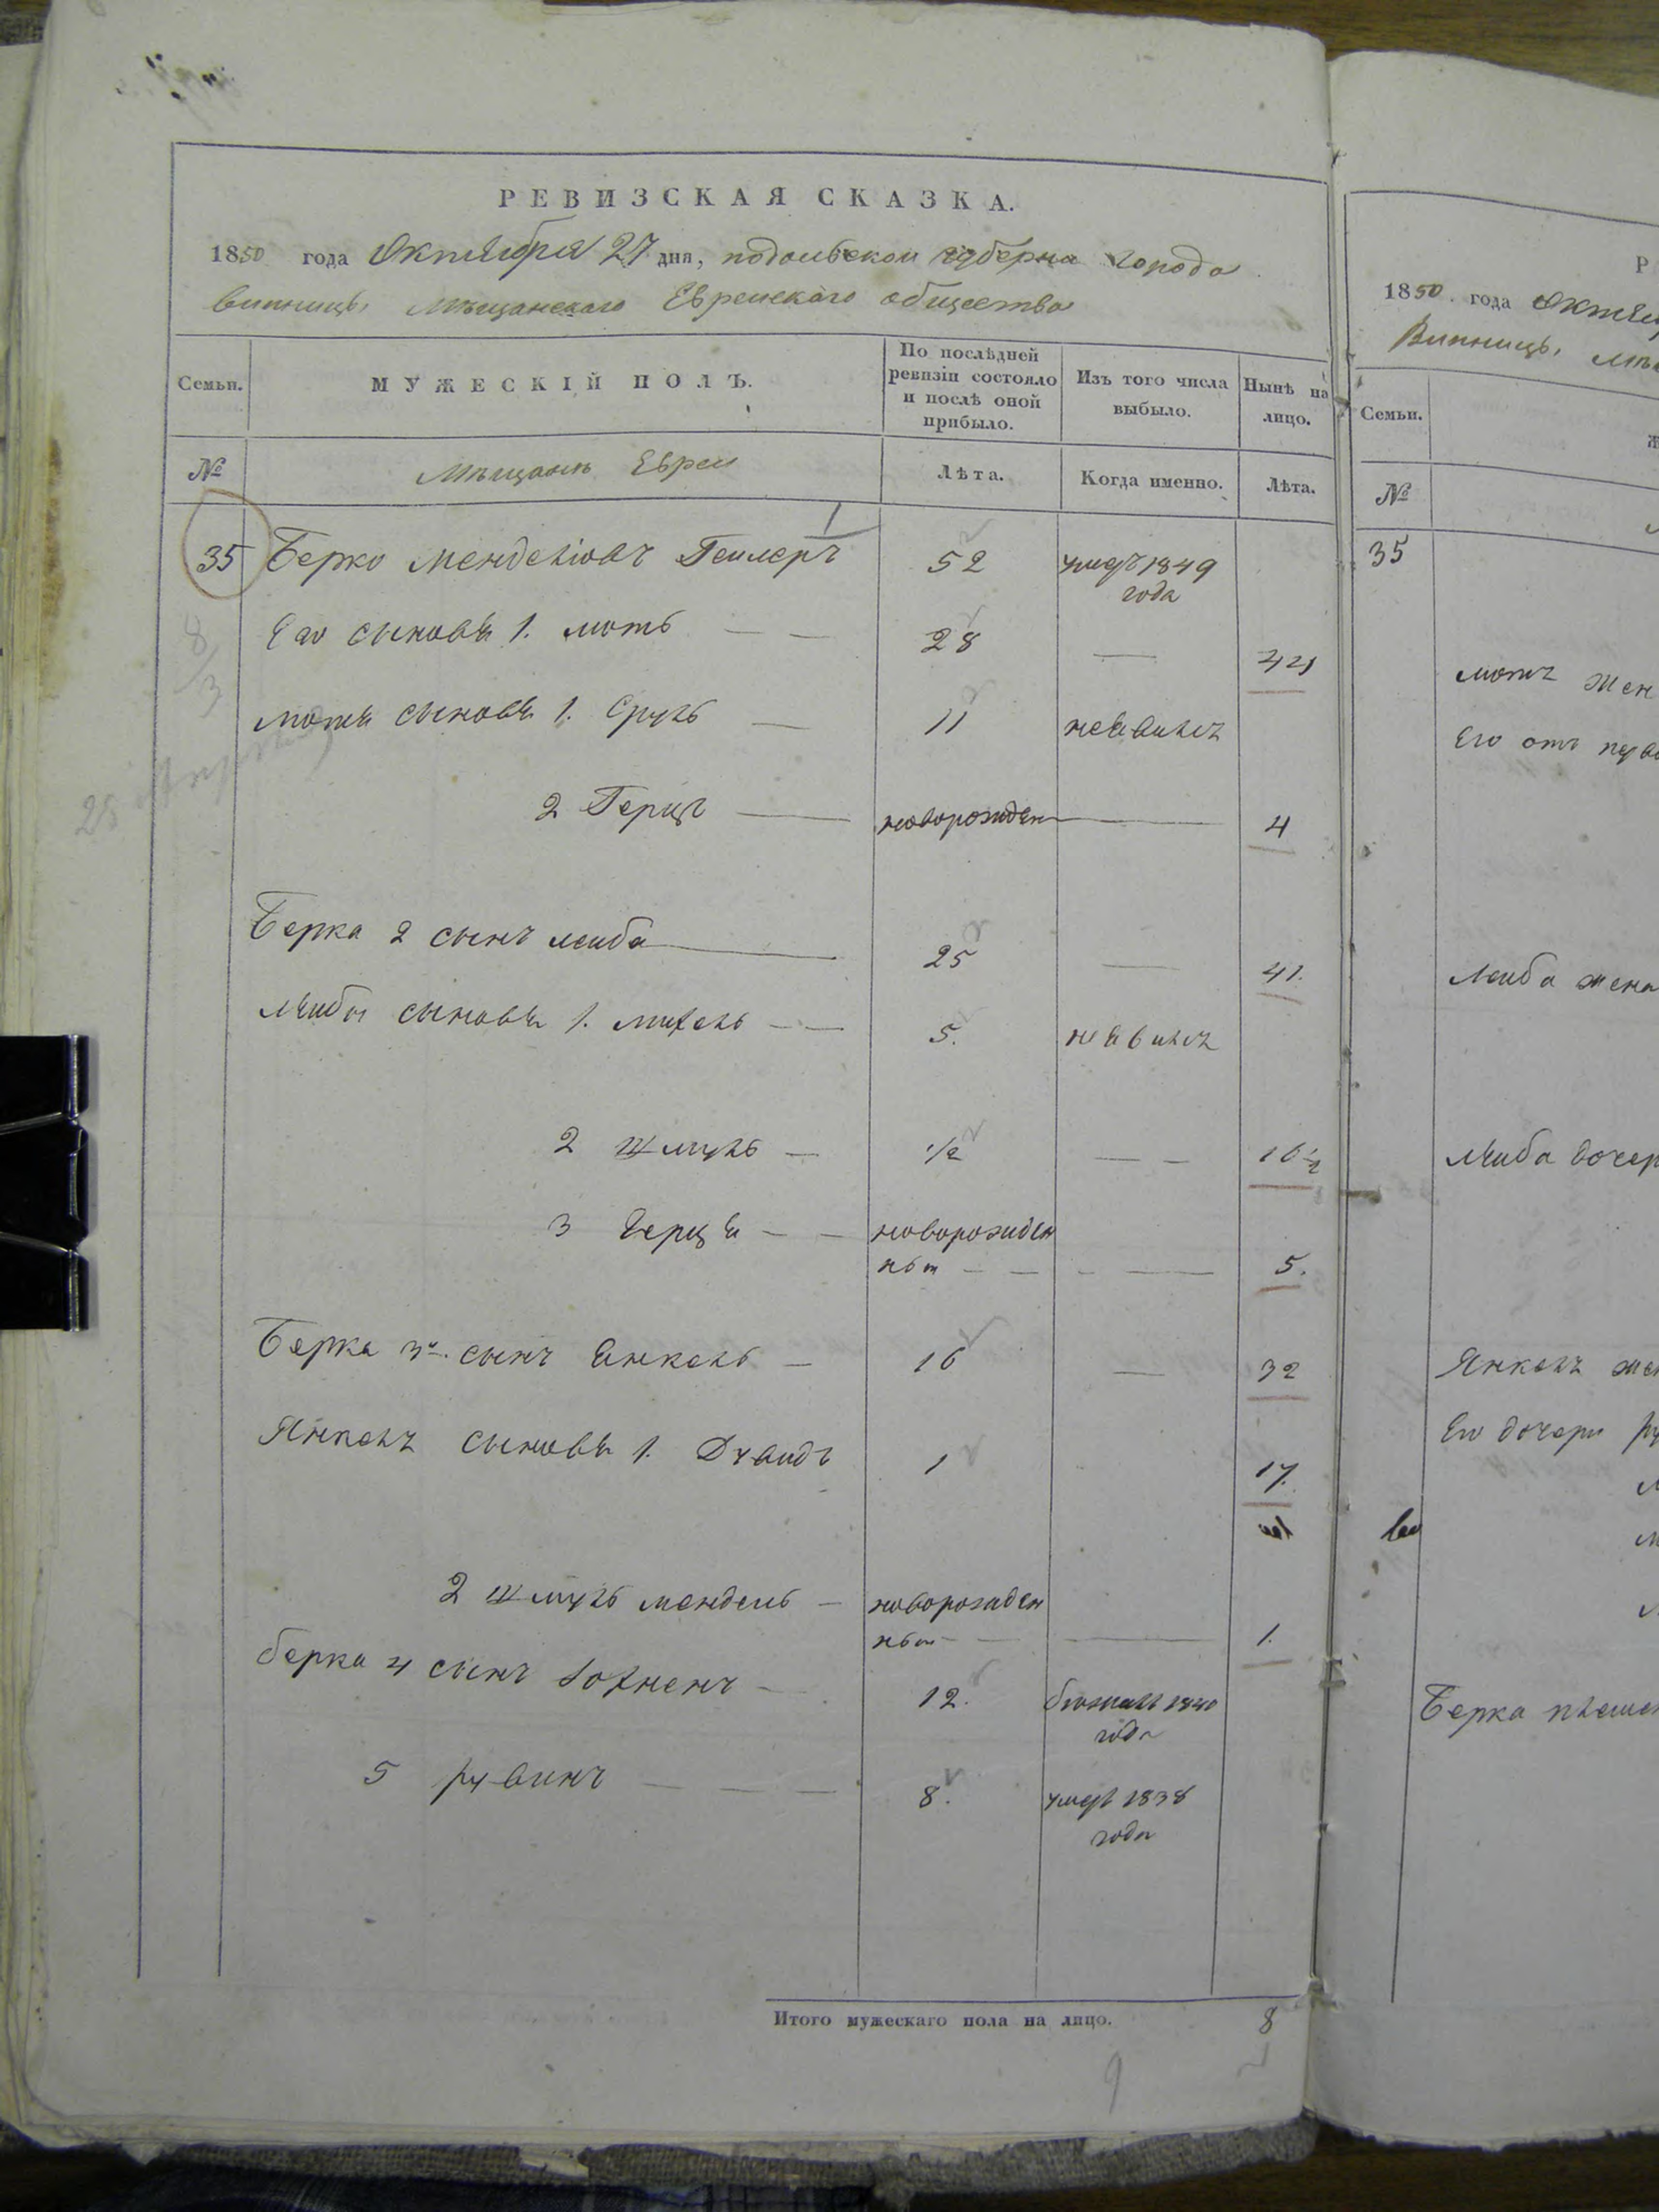 РЕВИЗСКАЯ СКАЗКА.
1850 года Октября 27 дня, подольской губерна города
винницы мѣщанскаго Еврейскаго общества
Семьи.
МУЖЕСКІЙ ПОЛЪ.
По послѣдней ревизіи состояло и послѣ оной прибыло.
Изъ того числа выбыло.
Нынѣ на лицо.
№
Мѣщанъ Евреи
Лѣта.
Когда именно.
Лѣта.
35 Берко Менделіовъ Гейлеръ 52 умеръ 1849
года
Его сыновья 1. мотъ 28 — 44
мотя сыновья 1. Сруль 11 неявился
2 Герцъ новорожден 4
Берка 2 сынъ лейба 25 — 41.
лейбы сыновья 1. михель 5. неявился
2 шмуль — 1/2 — 16 1/2
3 Герця новорожден
ный — 5.
Берка 3й. сынъ Янкель — 16 — 32
Янкель сыновья 1. Дувидъ 1 17.
2 шмуль мендель — новорожден
ный — 1.
берка 4 сынъ 12. бежалъ 1840
года
5 рувинъ 8. умеръ 1838
года
Итого мужескаго пола на лицо. 8
9
8
3
25
Р
1850. года Октя
Винницы, мѣ
Семьи.
№
35
мотъ жен
Его отъ перво
Лейба жена
Лейба дочер
Янкель жен
Его дочери ру
Берка племен